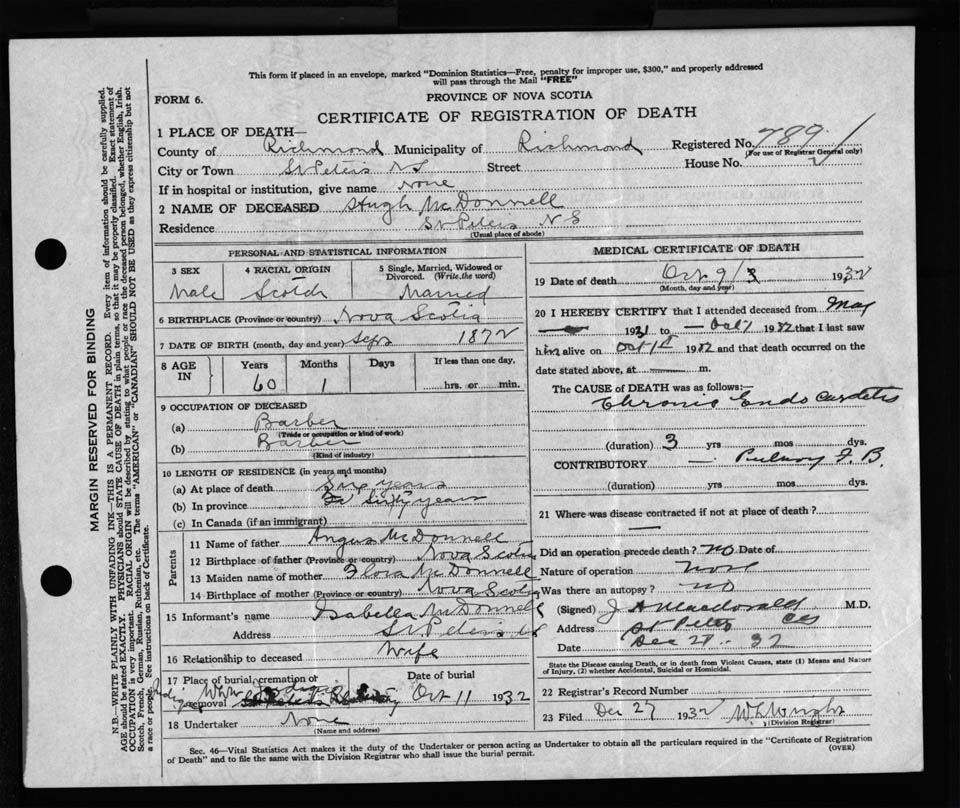 This form if placed in an envelope, marked "Dominion Statistics—Free, penalty for improper use, $300," and properly addressed
will pass through the Mail "FREE"
FORM 6.
PROVINCE OF NOVA SCOTIA
CERTIFICATE OF REGISTRATION OF DEATH
1 PLACE OF DEATH—
County of Richmond Municipality of Richmond Registered No. 789
(For use of Registrar General only)
City or Town St Peters N S Street House No.
If in hospital or institution, give name None
2 NAME OF DECEASED Hugh McDonnell
Residence St Peters N S
(Usual place of abode)
PERSONAL AND STATISTICAL INFORMATION
3 SEX 4 RACIAL ORIGIN 5 Single, Married, Widowed or Divorced. (Write the word)
Male Scotch Married
6 BIRTHPLACE (Province or country) Nova Scotia
7 DATE OF BIRTH (month, day and year) Sept 1872
8 AGE IN Years Months Days If less than one day,
60 1 hrs. or min.
9 OCCUPATION OF DECEASED
(a) Barber
(Trade or occupation or kind of work)
(b) Barber
(Kind of industry)
10 LENGTH OF RESIDENCE (in years and months)
(a) At place of death Six years
(b) In province Sixty years
(c) In Canada (if an immigrant)
Parents
11 Name of father Angus McDonnell
12 Birthplace of father (Province or country) Nova Scotia
13 Maiden name of mother Flora McDonnell
14 Birthplace of mother (Province or country) Nova Scotia
15 Informant's name Isabella McDonnell
Address St Peters
16 Relationship to deceased Wife
17 Place of burial, cremation or removal Date of burial
Oct 11 1932
18 Undertaker None
(Name and address)
MEDICAL CERTIFICATE OF DEATH
19 Date of death Oct 9 1932
(Month, day and year)
20 I HEREBY CERTIFY that I attended deceased from May
1931 to Oct 1 1932 that I last saw
him alive on Oct 1st 1932 and that death occurred on the
date stated above, at m.
The CAUSE of DEATH was as follows:—
Chronic Endocarditis
(duration) 3 yrs mos dys.
CONTRIBUTORY T. B.
(duration) yrs. mos. dys.
21 Where was disease contracted if not at place of death?
Did an operation precede death? No Date of
Nature of operation None
Was there an autopsy? No
(Signed) J A Macdonald M.D.
Address St Peters
Date Dec 21 32
State the Disease causing Death, or in death from Violent Causes, state (1) Means and Nature
of Injury, (2) whether Accidental, Suicidal or Homicidal.
22 Registrar's Record Number
23 Filed Dec 27 1932 W L Wright
(Division Registrar)
Sec. 46—Vital Statistics Act makes it the duty of the Undertaker or person acting as Undertaker to obtain all the particulars required in the "Certificate of Registration
of Death" and to file the same with the Division Registrar who shall issue the burial permit.
(OVER)
MARGIN RESERVED FOR BINDING
N.B.—WRITE PLAINLY WITH UNFADING INK—THIS IS A PERMANENT RECORD. Every item of information should be carefully supplied.
AGE should be stated EXACTLY. PHYSICIANS should STATE CAUSE OF DEATH in plain terms, so that it may be properly classified. Exact statement of
OCCUPATION is very important. RACIAL ORIGIN will be described by stating to what people or race the deceased person belonged, whether English, Irish,
Scotch, French, German, Russian, Ruthenian, etc. The terms "AMERICAN" or "CANADIAN" SHOULD NOT BE USED as they express citizenship but not
a race or people. See instructions on back of Certificate.